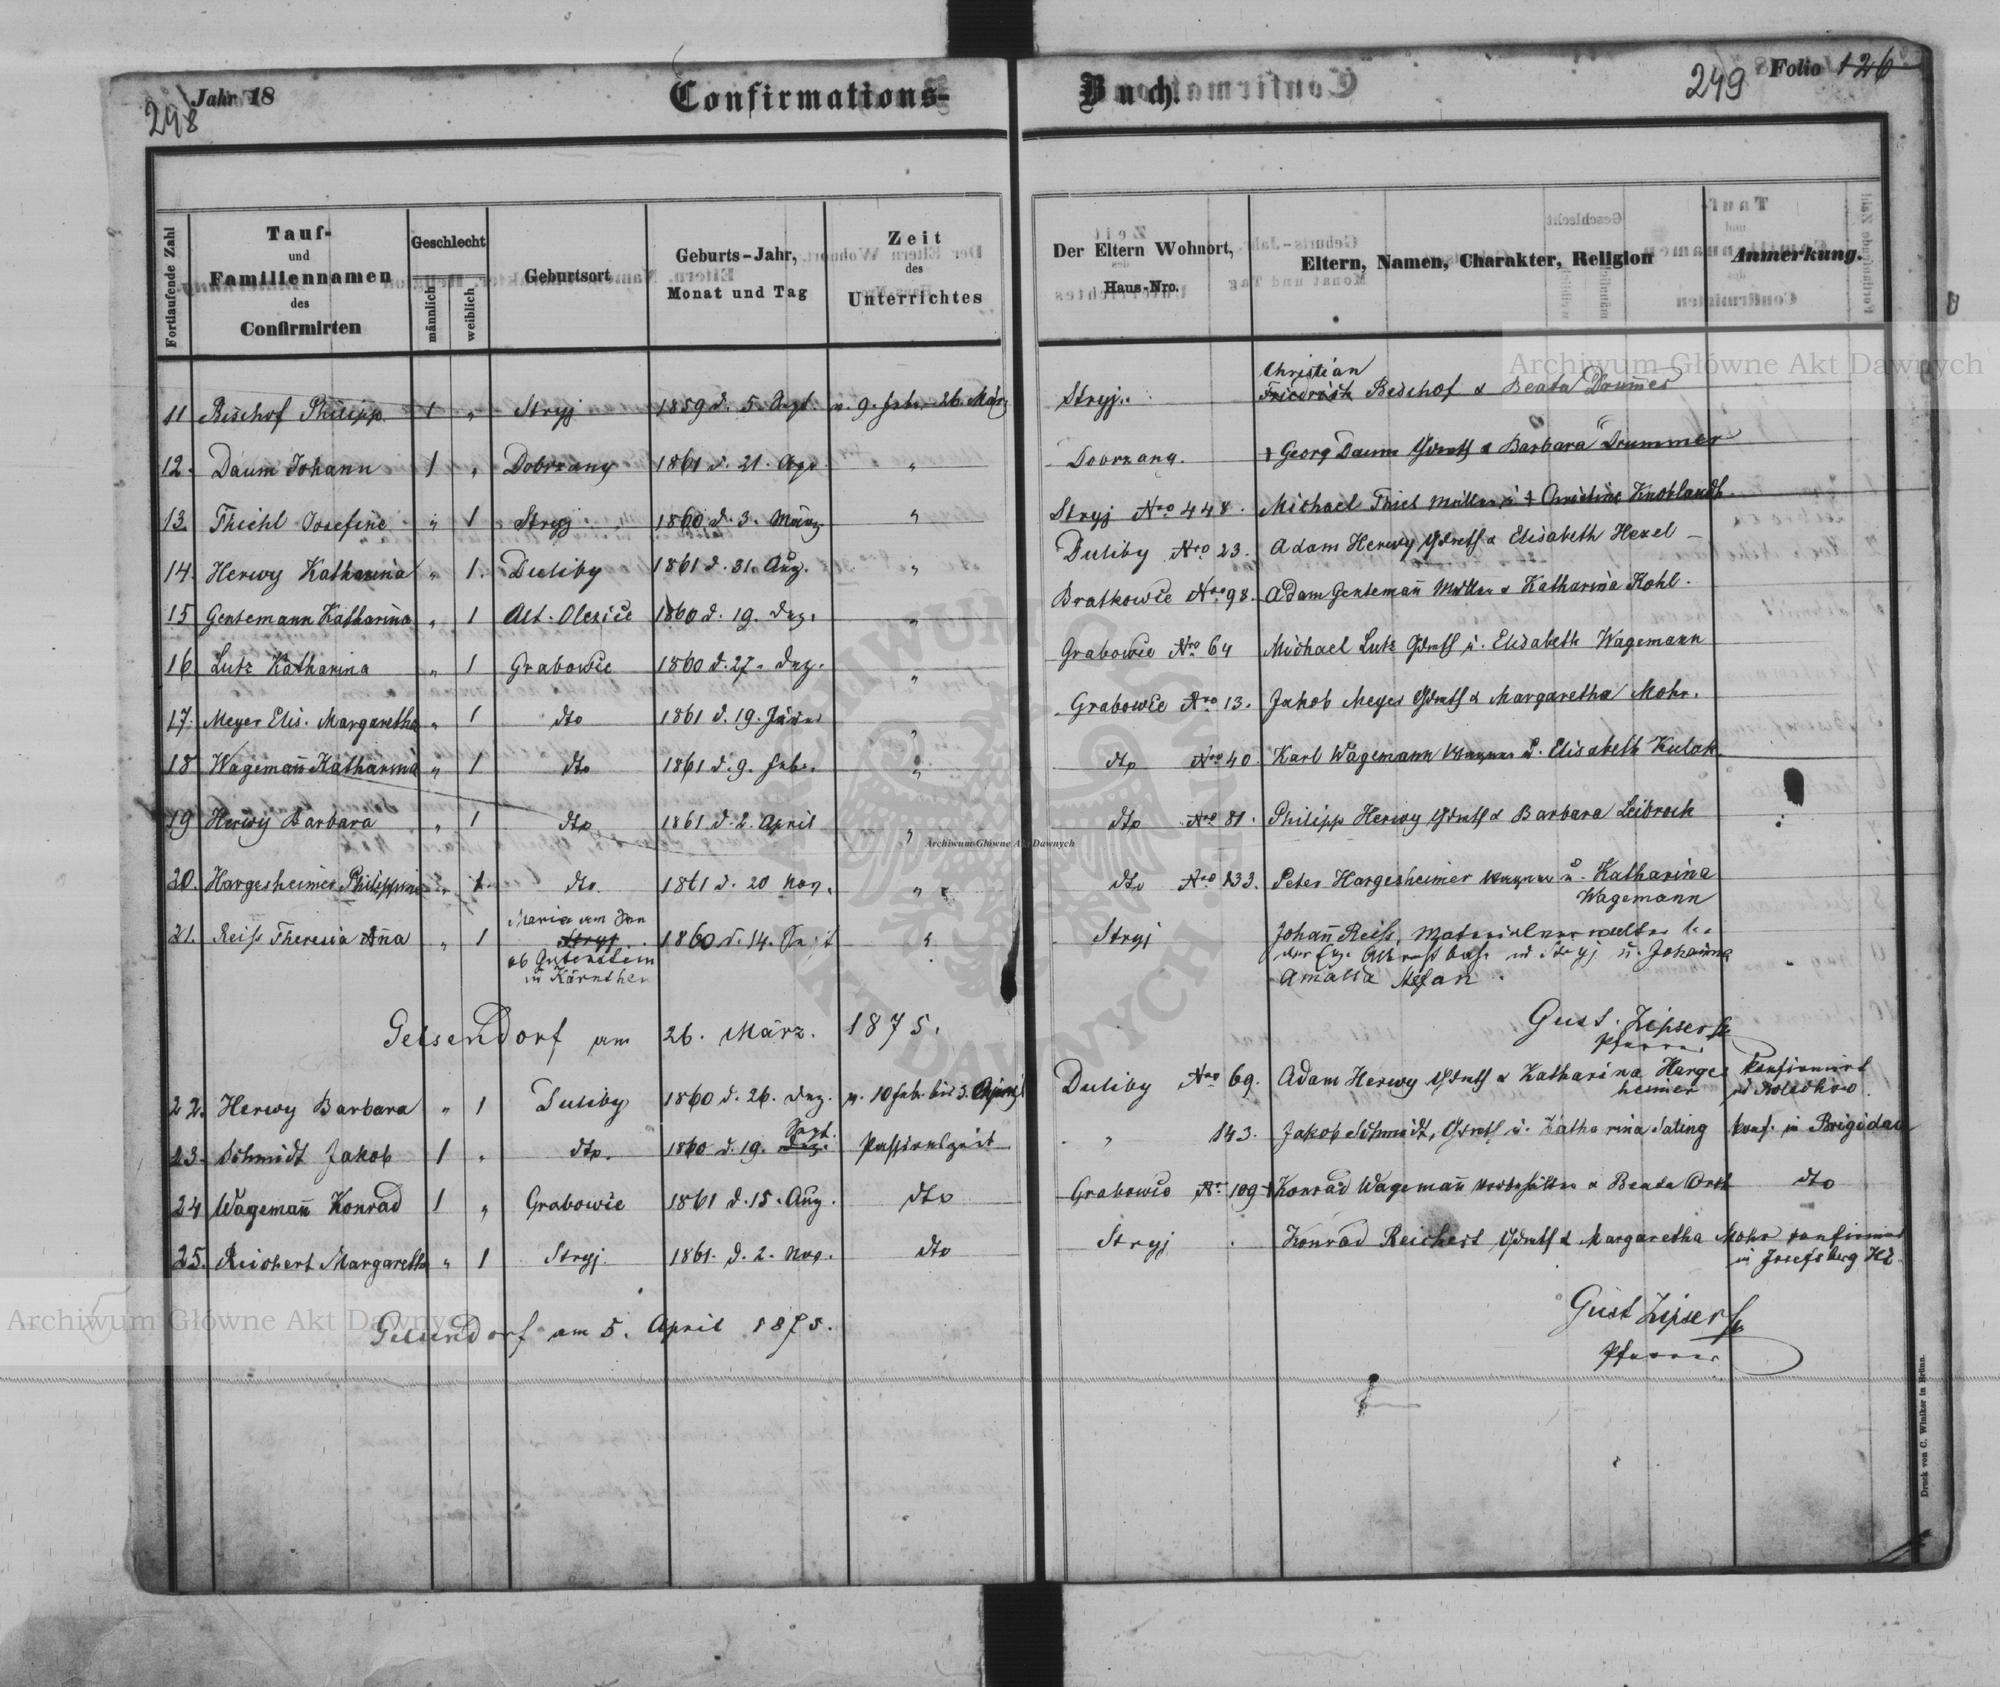 298
Jahr 18
Confirmations-
Buch.
249
Folio 126
Fortlaufende Zahl
Tauf-
und
Familiennamen
des
Confirmirten
Geschlecht
männlich
weiblich
Geburtsort
Geburts-Jahr,
Monat und Tag
Zeit
des
Unterrichtes
Der Eltern Wohnort,
Haus-Nro.
Eltern, Namen, Charakter, Religion
Anmerkung.
Archiwum Główne Akt Dawnych
Christian
11 Bischof Philipp 1 " Stryj 1859 d. 5. Sept v. 9. Febr. 26. März Stryj. Friedrich Bischof & Beata Daumer
12. Daum Johann 1 " Dobrzany 1861 d. 21. " Dobrzany. † Georg Daum & Barbara Drummer
13. Thiehl Josefine " 1 Stryj 1860 d. 3. März " Stryj Nro 448. Michael Thiel Müller u. † Christine
14. Herwy Katharina " 1. Duliby 1861 d. 31. Aug. " Duliby Nro 23. Adam Herwy & Elisabeth Hexel
15 Gentemann Katharina " 1 Alt-Olexice 1860 d. 19. Dez. " Bratkowce Nro 98. Adam Gentemañ Müller & Katharina Kohl.
16. Lutz Katharina " 1 Grabowce 1860 d. 27. Dez. " Grabowce Nro 64 Michael Lutz u. Elisabeth Wagemann
17. Meyer Elis. Margaretha " 1 dto 1861 d. 19. Jän " Grabowce Nro 13. Jakob Meyer & Margaretha Mohr.
18 Wagemañ Katharina " 1 dto 1861 d. 9. Febr. " dto Nro 40. Karl Wagemann Wagner u. Elisabeth Kulak
19 Herwy Barbara " 1 dto 1861 d. 2. April " dto Nro 81. Philipp Herwy & Barbara Leibrock
20. Hargesheimer Philippine " 1 dto. 1861 d. 20 Nov. " dto Nro 133. Peter Hargesheimer Wagner u. Katharina
Wagemann
Maria am
21. Reiß Theresia Aña " 1 Stryj 1860 d. 14. " Stryj Johañ Reiß, Materialverwalter
ob Gutenstein
in Kärnthen
in Stryj u. Johanna
Amalia Stefan.
Gelsendorf am 26. März. 1875.
Gust. Zipser
Pfarrer
22. Herwy Barbara " 1 Duliby 1860 d. 26. Dez. v. 10 Feb. bis 3. April Duliby Nro 69. Adam Herwy & Katharina Harges
heimer
Konfirmirt
in Bolechow.
23. Schmidt Jakob 1 " dto. 1860 d. 19. Dez. Sept. Passionszeit " 143. Jakob Schmidt, u. Katharina Saling konf. in Brigidau
24 Wagemañ Konrad 1 " Grabowce 1861 d. 15. Aug. dto Grabowce Nr 109 † Konrad Wagemañ & Beata Orth dto
25. Reichert Margaretha " 1 Stryj. 1861. d. 2. Nov. dto Stryj Konrad Reichert & Margaretha Mohr konfirmirt
in Josefsberg
Archiwum Główne Akt Dawnych
Gelsendorf am 5. April 1875.
Gust Zipser
Pfarrer
Archiwum Główne Akt Dawnych
Druck von C. Winiker in Brünn.